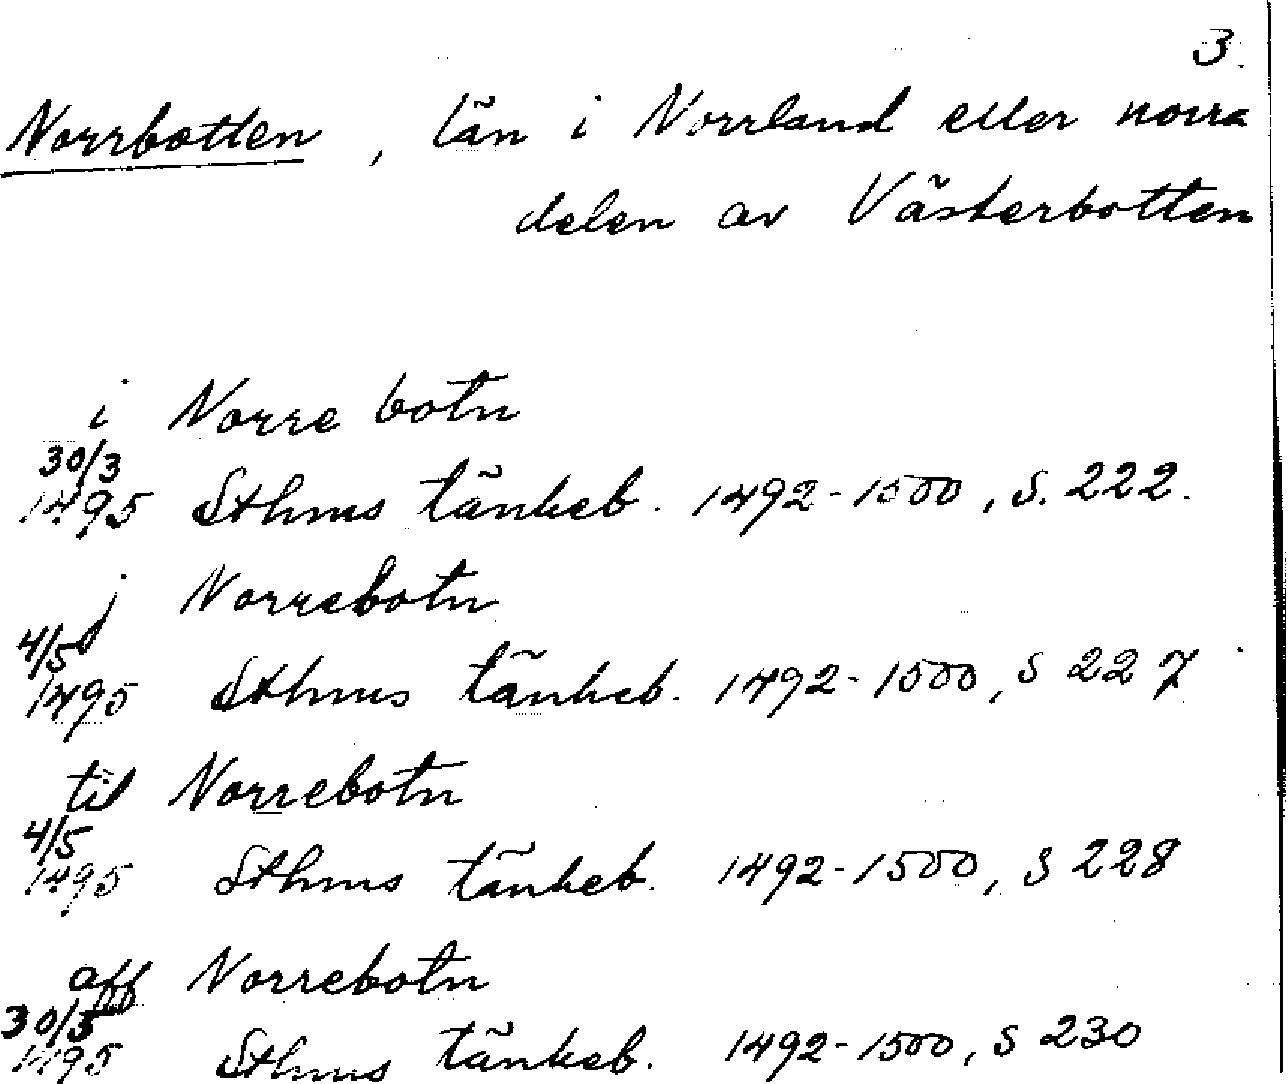 3.
Norrbotten, län i Norrland eller norra
delen av Västerbotten
i Norre botn
30/3
1495 Sthms tänkeb. 1492-1500, S. 222.
j Norrebotn
4/5
1495 Sthms tänkeb. 1492-1500, S 227
til Norrebotn
4/5
1495 Sthms tänkeb. 1492-1500, S 228
aff Norrebotn
30/5
1495 Sthms tänkeb. 1492-1500, S 230